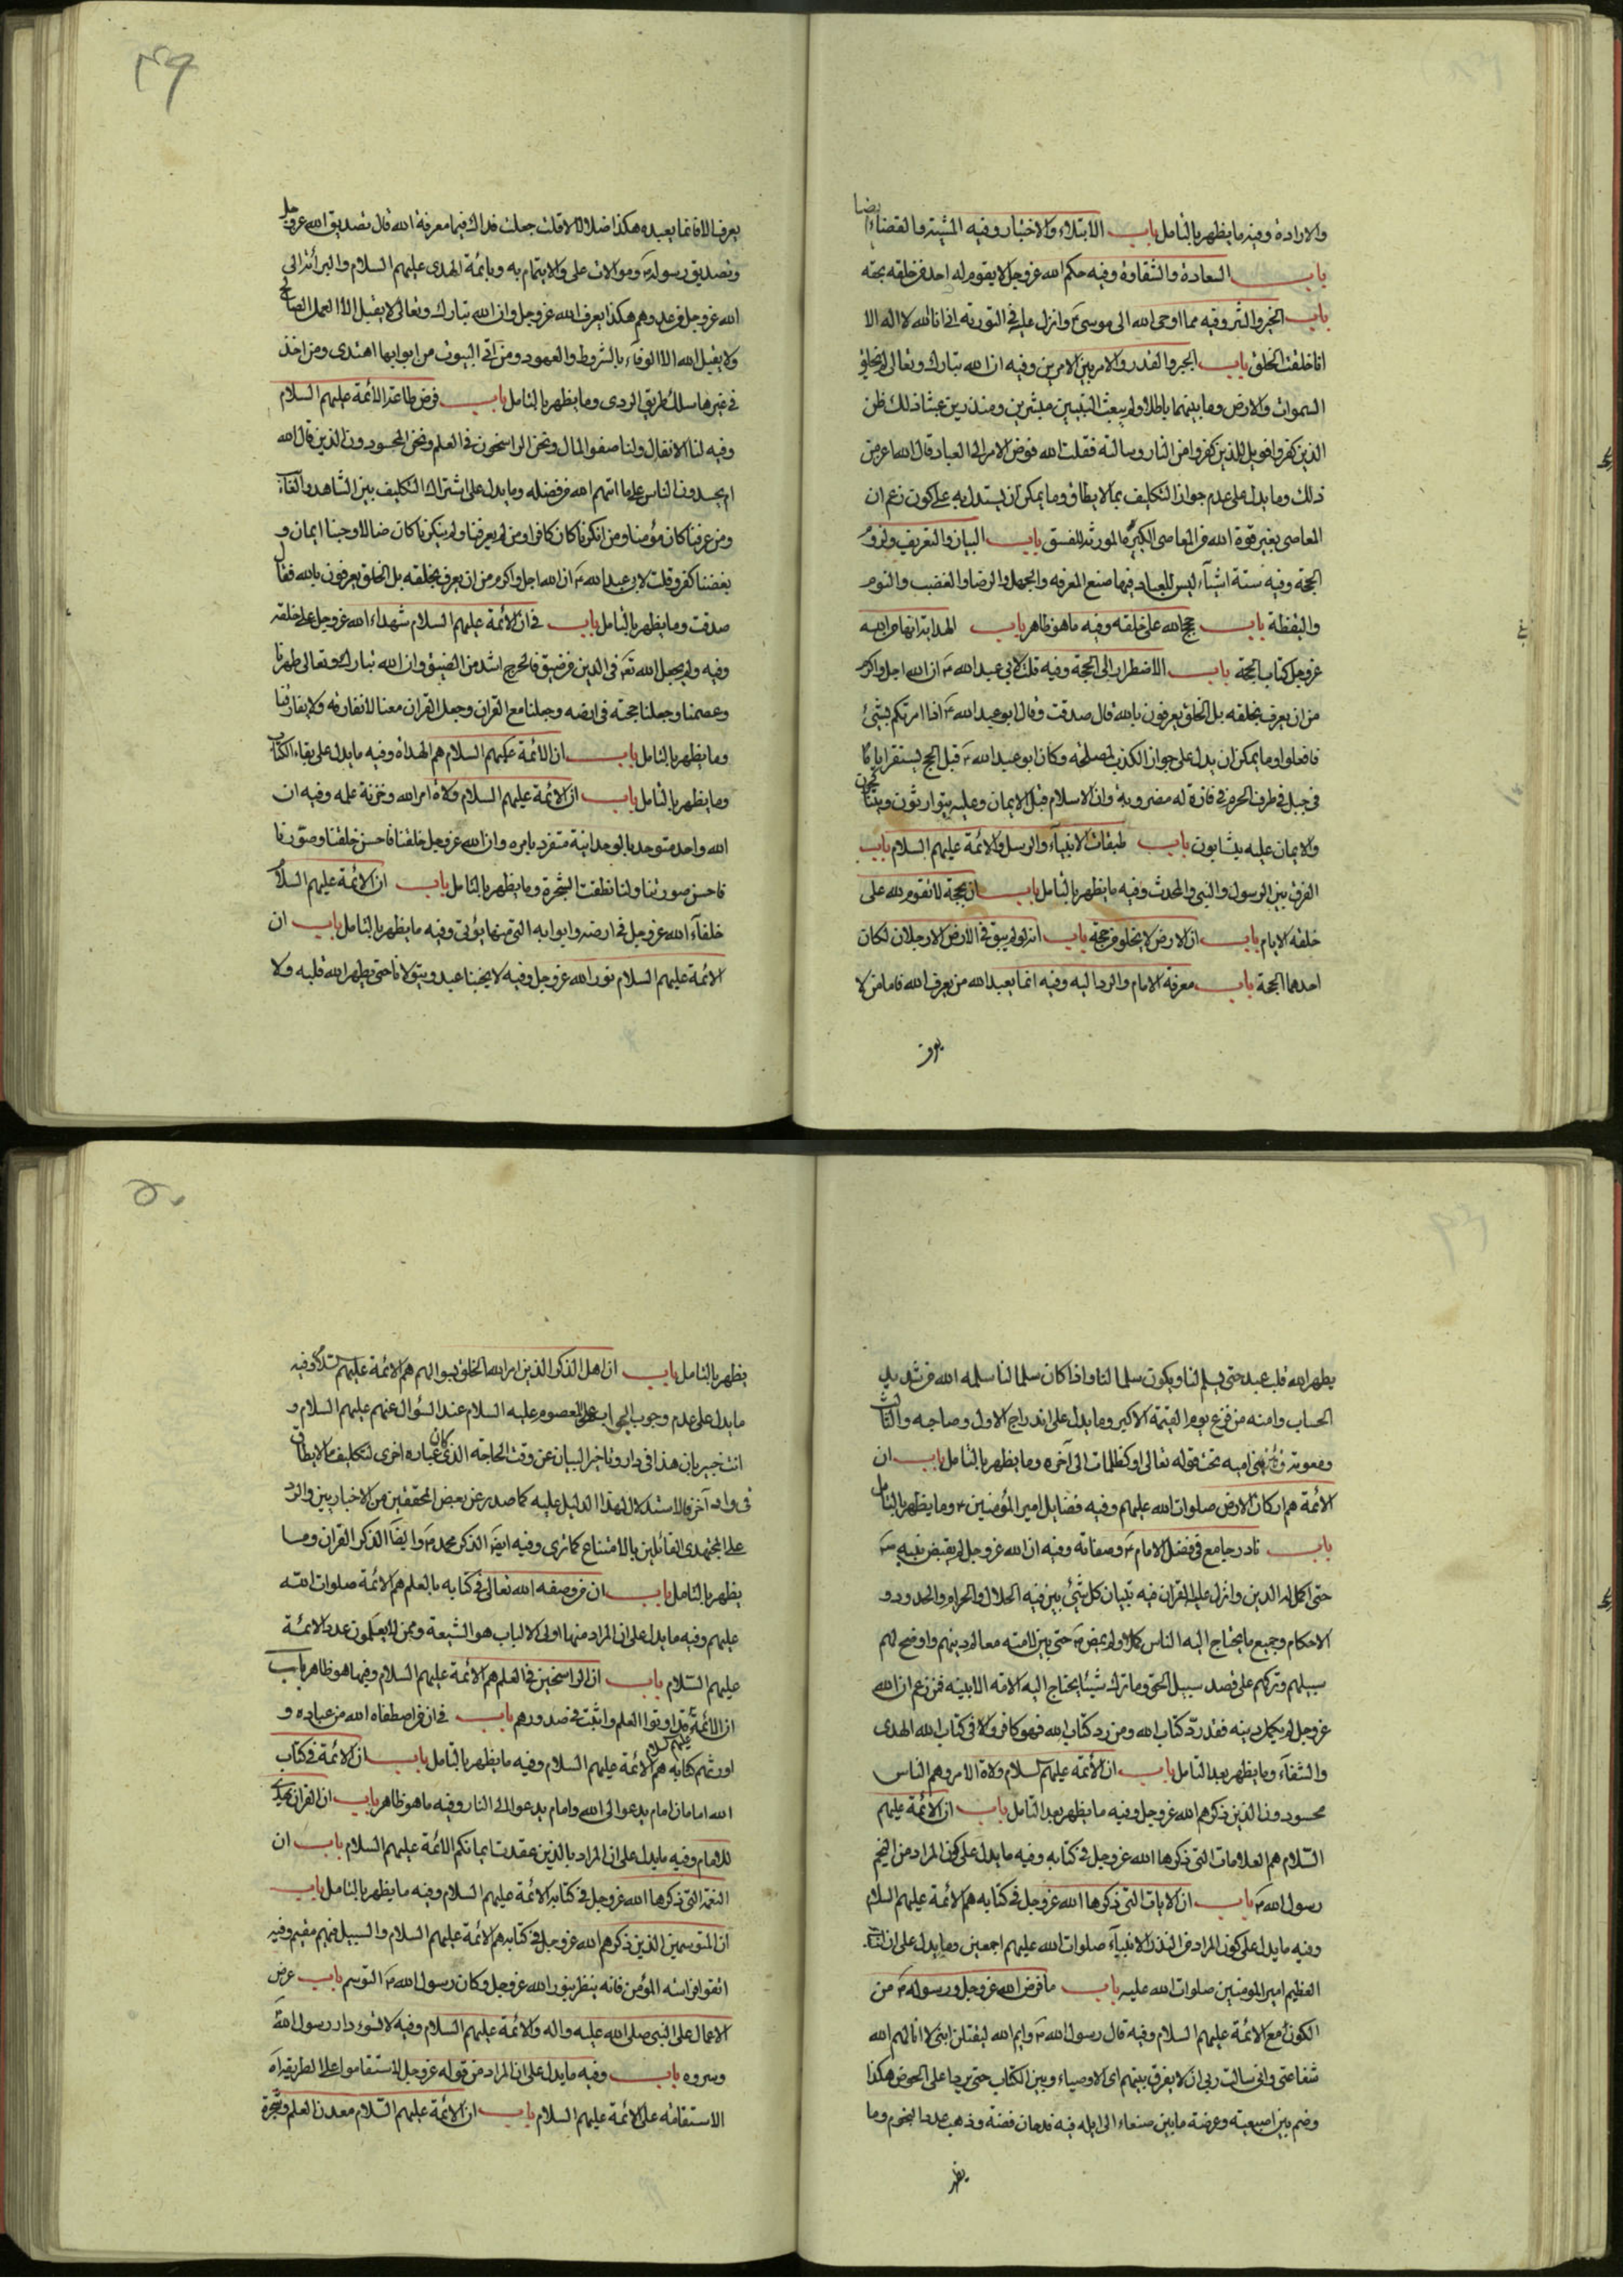 والارادة وفيه ما يظهر بالتامل باب الابتلاء والاختبار وفيه المشية والقضاء ايضا
باب السعادة والشقاوة وفيه حكم الله عز وجل لا يقوم له احد من خلقه بحقه
باب الخير والشر وفيه مما اوحى الله الى موسى ع وانزل عليه في التورية اني انا الله لا اله الا
انا خلقت الخلق باب الجبر والقدر والامر بين الامرين وفيه ان الله تبارك وتعالى لم يخلق
السموات والارض وما بينهما باطلا ولم يبعث النبيين مبشرين ومنذرين عبثا ذلك ظن
الذين كفروا فويل للذين كفروا من النار وسالته فقلت الله فوض الامر الى العباد قال الله اعز من
ذلك وما يدل على عدم جواز التكليف بما لا يطاق وما يمكن ان يستدل به على كون زعم ان
المعاصي بغير قوة الله من المعاصي الكبيرة المورثة للفسق باب البيان والتعريف ولزوم
الحجة وفيه ستة اشيآء ليس للعباد فيها صنع المعرفه والجهل والرضا والغضب والنوم
واليقظة باب حجج الله على خلقه وفيه ما هو ظاهر باب الهداية انها من الله
عز وجل كتاب الحجة باب الاضطرار الى الحجة وفيه قلت لابي عبد الله ع ان الله اجل واكرم
من ان يعرف بخلقه بل الخلق يعرفون بالله قال صدقت وقال ابو عبد الله ع اذا امرتكم بشئ
فافعلوا وما يمكن ان يدل على جواز الكذب لمصلحة وكان ابو عبد الله ع قبل الحج يستقر اياما
في جبل في طرف الحرم في فازة له مضروبة وان الاسلام قبل الايمان وعليه يتوارثون ويتناكحون
والايمان عليه يثابون باب طبقات الانبيآء والرسل والائمة عليهم السلام باب
الفرق بين الرسول والنبي والمحدث وفيه ما يظهر بالتامل باب ان الحجة لا تقوم لله على
خلقه الا بامام باب ان الارض لا يخلو من حجة باب انه لو لم يبق في الارض الا رجلان لكان
احدهما الحجة باب معرفة الامام والرد اليه وفيه انما يعبد الله من يعرف الله فاما من لا
يعرف
۴۹
يعرف الله فانما يعبده هكذا ضلالا قلت جعلت فداك فما معرفة الله قال تصديق الله عز وجل
وتصديق رسوله ص وموالات على والايتمام به وبائمة الهدى عليهم السلام والبرائة الى
الله عز وجل من عدوهم هكذا يعرف الله عز وجل وان الله تبارك وتعالى لا يقبل الا العمل الصالح
ولا يقبل الله الا الوفآء بالشروط والعهود ومن اتى البيوت من ابوابها اهتدى ومن اخذ
في غيرها سلك طريق الردى وما يظهر بالتامل باب فرض طاعة الائمة عليهم السلام
وفيه لنا الانفال ولنا صفو المال ونحن الراسخون في العلم ونحن المحسودون الذين قال الله
ام يحسدون الناس على ما اتيهم الله من فضله وما يدل على اشتراك التكليف بين الشاهد والغائب
ومن عرفنا كان مؤمنا ومن انكرنا كان كافرا ومن لم يعرفنا ولم ينكرنا كان ضالا وحبنا ايمان و
بغضنا كفر وقلت لابي عبد الله ع ان الله اجل واكرم من ان يعرف بخلقه بل الخلق يعرفون بالله فقال
صدقت وما يظهر بالتامل باب في ان الائمة عليهم السلام شهداء الله عز وجل على خلقه
وفيه ولم يجعل الله تع في الدين من ضيق فالحرج اشد من الضيق وان الله تبارك وتعالى طهرنا
وعصمنا وجعلنا حجته في ارضه وجعلنا مع القران وجعل القران معنا لا نفارقه ولا يفارقنا
وما يظهر بالتامل باب ان الائمة عليهم السلام هم الهداة وفيه ما يدل على بقاء الكتاب
وما يظهر بالتامل باب ان الائمة عليهم السلام ولاة امر الله وخزنة علمه وفيه ان
الله واحد متوحد بالوحدانية متفرد بامره وان الله عز وجل خلقنا فاحسن خلقنا وصورنا
فاحسن صورتنا ولنا نطقت الشجرة وما يظهر بالتامل باب ان الائمة عليهم السلام
خلفآء الله عز وجل في ارضه وابوابه التي منها يؤتى وفيه ما يظهر بالتامل باب ان
الائمة عليهم السلام نور الله عز وجل وفيه لا يحبنا عبد ويتولانا حتى يطهر الله قلبه ولا
يطهر الله قلب عبد حتى يسلم لنا ويكون سلما لنا واذا كان سلما لنا سلمه الله من شديد
الحساب وامنه من فزع يوم القيمة الاكبر وما يدل على اندراج الاول وصاحبه والثالث
ومعوية وفتن بني اميه تحت قوله تعالى او كظلمات الى آخره وما يظهر بالتامل باب ان
الائمة هم اركان الارض صلوات الله عليهم وفيه فضايل امير المؤمنين ع وما يظهر بالتامل
باب نادر جامع في فضل الامام ع وصفاته وفيه ان الله عز وجل لم يقبض نبيه ص
حتى اكمل له الدين وانزل عليه القران فيه تبيان كل شئ بين فيه الحلال والحرام والحدود و
الاحكام وجميع ما يحتاج اليه الناس كملا ولم يمض ص حتى بين لامته معالم دينهم واوضح لهم
سبيلهم وتركهم على قصد سبيل الحق وما ترك شيئا يحتاج اليه الامه الا بينه فمن زعم ان الله
عز وجل لم يكمل دينه فقد رد كتاب الله ومن رد كتاب الله فهو كافر ولا في كتاب الله الهدى
والشفآء وما يظهر بعد التامل باب ان الائمة عليهم السلام ولاة الامر وهم الناس
محسودون الذين ذكرهم الله عز وجل وفيه ما يظهر بعد التامل باب ان الائمة عليهم
السلام هم العلامات التي ذكرها الله عز وجل في كتابه وفيه ما يدل على كون المراد من النجم
رسول الله ص باب ان الايات التي ذكرها الله عز وجل في كتابه هم الائمة عليهم السلام
وفيه ما يدل على كون المراد من النذر الانبيآء صلوات الله عليهم اجمعين وما يدل على ان النبأ
العظيم امير المومنين صلوات الله عليه باب ما فرض الله عز وجل ورسوله ص من
الكون مع الائمة عليهم السلام وفيه قال رسول الله ص وايم الله ليقتلن ابني لا انالهم الله
شفاعتي واني سالت ربي ان لا يفرق بينهم اى الاوصياء وبين الكتاب حتى يردا على الحوض هكذا
وضم بين اصبعيه وعرضه ما بين صنعاء الى ايله فيه قدحان فضة وذهب عدد النجوم وما
يظهر
۵۰
يظهر بالتامل باب ان اهل الذكر الذين امر الله الخلق بسوالهم هم الائمة عليهم السلام وفيه
ما يدل على عدم وجوب الجواب على المعصوم عليه السلام عند السؤال عنهم عليهم السلام و
انت خبير بان هذا في دار وتاخير البيان عن وقت الحاجة الذي كان عباره اخرى لتكليف ما لا يطاق
في واد آخر فالاستدلال بهذا الدليل عليه كما صدر عن بعض المحققين من الاخباريين والرد
على المجتهدى القائلين بالامتناع كما ترى وفيه ايض الذكر محمد ص وايضا الذكر القران وما
يظهر بالتامل باب ان من وصفه الله تعالى في كتابه بالعلم هم الائمة صلوات الله
عليهم وفيه ما يدل على ان المراد منها اولى الالباب هو الشيعة وممن لا يعلمون عدد الائمة
عليهم السلام باب ان الراسخين في العلم هم الائمة عليهم السلام وفيها هو ظاهر باب
ان الائمة قد اوتوا العلم واثبت في صدورهم باب في ان من اصطفاه الله من عباده و
اورثهم كتابه هم الائمة عليهم السلام وفيه ما يظهر بالتامل باب ان الائمة في كتاب
الله امامان امام يدعو الى الله وامام يدعو الى النار وفيه ما هو ظاهر باب ان القران يهدى
للامام وفيه ما يدل على ان المراد بالذين عقدت ايمانكم الائمة عليهم السلام باب ان
النعمة التي ذكرها الله عز وجل في كتابه الائمة عليهم السلام وفيه ما يظهر بالتامل باب
ان المتوسمين الذين ذكرهم الله عز وجل في كتابه هم الائمة عليهم السلام والسبيل فيهم مقيم وفيه
اتقوا فراسة المؤمن فانه ينظر بنور الله عز وجل وكان رسول الله ص المتوسم باب عرض
الاعمال على النبي صلى الله عليه واله والائمة عليهم السلام وفيه لا تسوء دار رسول الله
وسروه باب وفيه ما يدل على ان المراد من قوله عز وجل لاستقاموا على الطريقة اه
الاستقامة على الائمة عليهم السلام باب ان الائمة عليهم السلام معدن العلم وشجرة